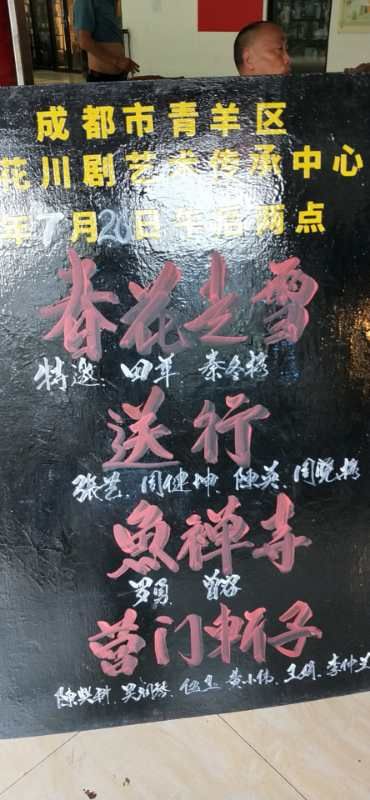 成都市青羊区
花川剧艺术传承中心
年7月20日午后两点
春花走雪
特邀、田军、秦冬梅
送行
张艺、周健坤、陈英、周晓梅
魚禅寺
罗勇 曾容
营门斩子
陈 吴 伍玉、黄小伟、王娟、李仲